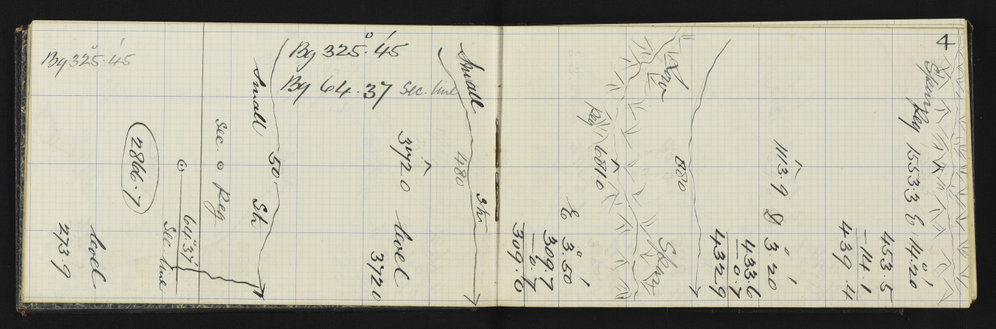 4
Bg 325° 45'
Bg 325° 45'
Bg 64.37 Sec. line
Small
50
Sh
Sec ⊙ Peg
64° 37'
Sec. line
2866.7
level
273.9
Small
480
Sh
3720
level
3720
Low
Peg
6810
Spur
880
E 3° 50'
309.7
-0.7
309.0
1113.9
D 3° 20'
433.6
-0.7
432.9
Peg 1553.3 E 14° 20'
453.5
-14.1
439.4